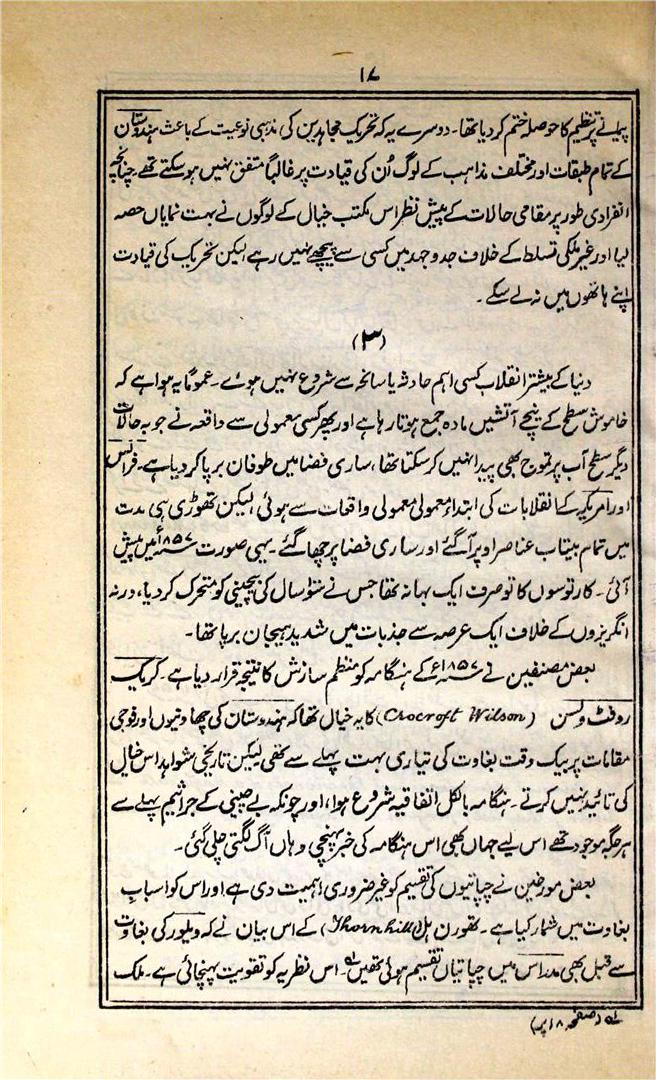 ۱۷
پیمانے پر تنظیم کا حوصلہ ختم کر دیا تھا۔ دوسرے یہ کہ تحریک مجاہدین کی مذہبی نوعیت کے باعث ہندوستان
کے تمام طبقات اور مختلف مذاہب کے لوگ اُن کی قیادت پر غالباً متفق نہیں ہو سکتے تھے۔ چنانچہ
انفرادی طور پر مقامی حالات کے پیش نظر اس مکتب خیال کے لوگوں نے بہت نمایاں حصہ
لیا اور غیر ملکی تسلط کے خلاف جدوجہد میں کسی سے پیچھے نہیں رہے لیکن تحریک کی قیادت
اپنے ہاتھوں میں نہ لے سکے۔
(۳)
دنیا کے بیشتر انقلاب کسی اہم حادثہ یا سانحہ سے شروع نہیں ہوئے۔ عموماً یہ ہوا ہے کہ
خاموش سطح کے نیچے آتشیں مادہ جمع ہوتا رہا ہے اور پھر کسی معمولی سے واقعہ نے جو بہ حالات
دیگر سطح آب پر تموج بھی پیدا نہیں کر سکتا تھا، ساری فضا میں طوفان برپا کر دیا ہے۔ فرانس
اور امریکہ کے انقلابات کی ابتداء معمولی معمولی واقعات سے ہوئی لیکن تھوڑی ہی مدت
میں تمام بیتاب عناصر اوپر آ گئے اور ساری فضا پر چھا گئے۔ یہی صورت ۱۸۵۷ء میں پیش
آئی۔ کارتوسوں کا تو صرف ایک بہانہ تھا جس نے سو سال کی بیچینی کو متحرک کر دیا، ورنہ
انگریزوں کے خلاف ایک عرصہ سے جذبات میں شدید ہیجان برپا تھا۔
بعض مصنفین نے ۱۸۵۷ء کے ہنگامہ کو منظم سازش کا نتیجہ قرار دیا ہے۔ کریک
روفٹ ولسن (Crocroft Wilson) کا یہ خیال تھا کہ ہندوستان کی چھاونیوں اور فوجی
مقامات پر بیک وقت بغاوت کی تیاری بہت پہلے سے تھی لیکن تاریخی شواہد اس خیال
کی تائید نہیں کرتے۔ ہنگامہ بالکل اتفاقیہ شروع ہوا، اور چونکہ بے چینی کے جراثیم پہلے سے
ہر جگہ موجود تھے اس لیے جہاں بھی اس ہنگامہ کی خبر پہنچی وہاں آگ لگتی چلی گئی۔
بعض مورخین نے چپاتیوں کی تقسیم کو غیر ضروری اہمیت دی ہے اور اس کو اسباب
بغاوت میں شمار کیا ہے۔ تھورن ہل (Thornhill) کے اس بیان نے کہ ویلور کی بغاوت
سے قبل بھی مدراس میں چپاتیاں تقسیم ہوئی تھیں لہ۔ اس نظریہ کو تقویت پہنچائی ہے۔ ملک
لہ (صفحہ ۱۸ پر)